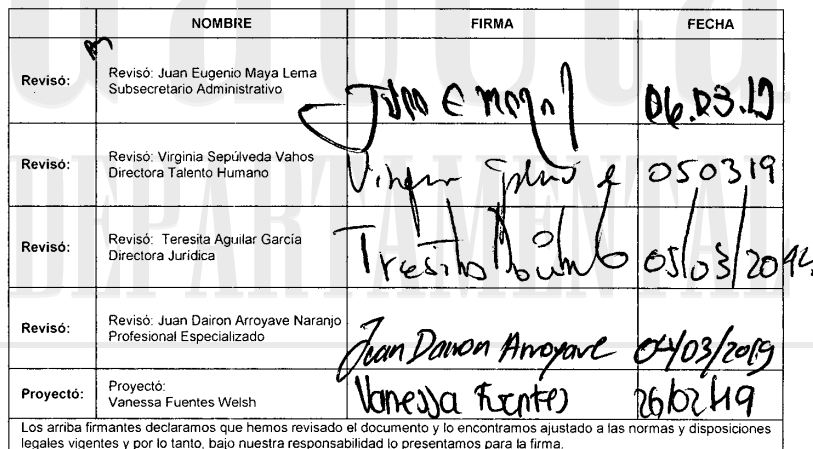 NOMBRE FIRMA FECHA
Revisó: Revisó: Juan Eugenio Maya Lema
Subsecretario Administrativo
Juan E Maya L 06.03.19
Revisó: Revisó: Virginia Sepúlveda Vahos
Directora Talento Humano
050319
Revisó: Revisó: Teresita Aguilar García
Directora Jurídica
Teresita 05/03/2019
Revisó: Revisó: Juan Dairon Arroyave Naranjo
Profesional Especializado
Juan Dairon Arroyave 04/03/2019
Proyectó: Proyectó:
Vanessa Fuentes Welsh
Vanessa Fuentes 26/02/19
Los arriba firmantes declaramos que hemos revisado el documento y lo encontramos ajustado a las normas y disposiciones
legales vigentes y por lo tanto, bajo nuestra responsabilidad lo presentamos para la firma.
DEPARTAMENTAL